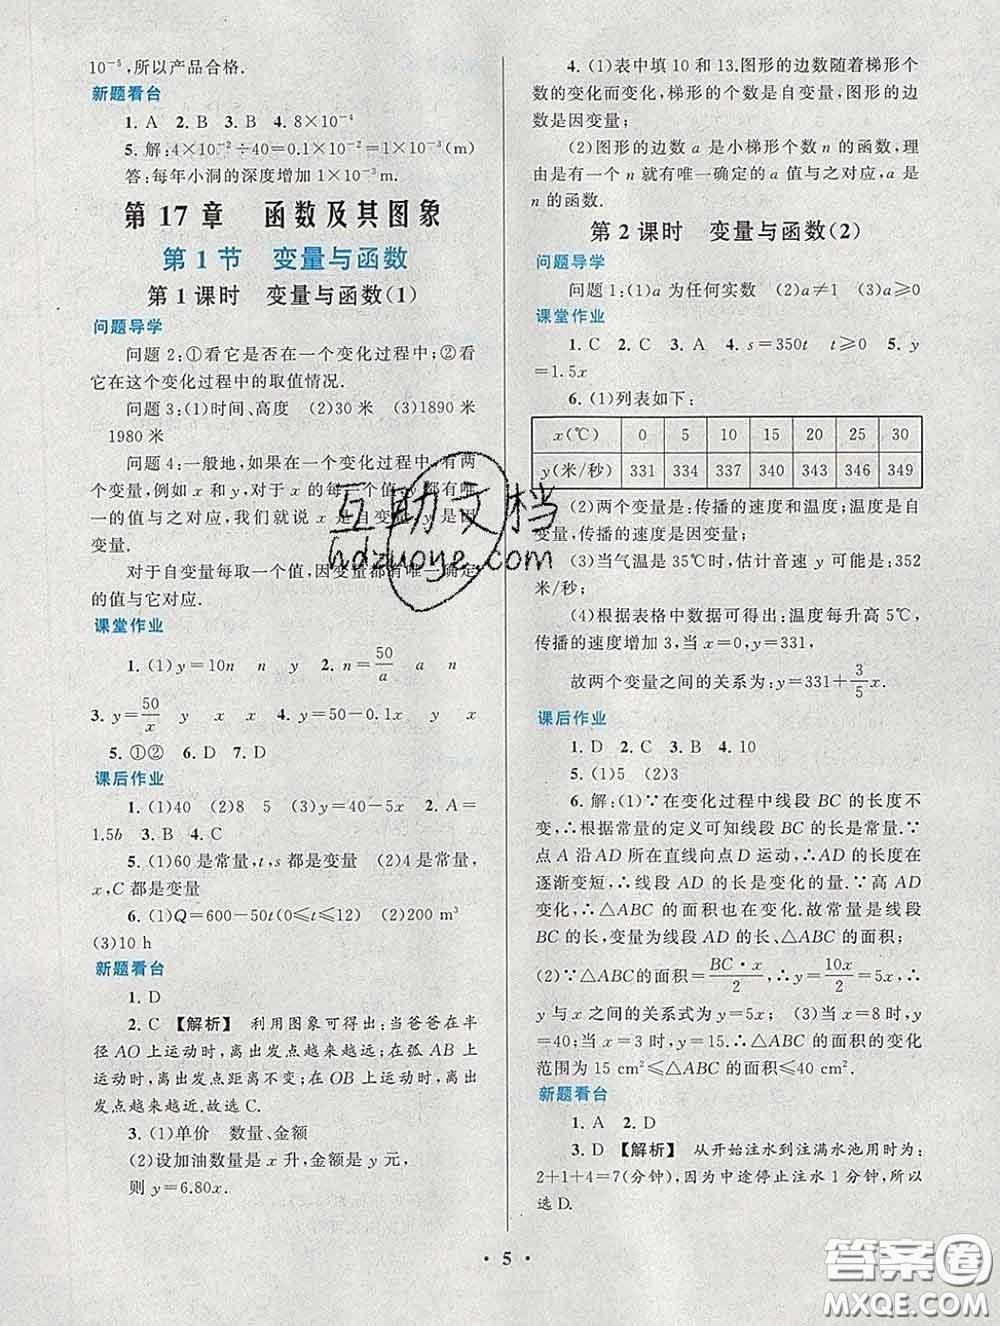 10⁻⁵,所以产品合格.
新题看台
1. A  2. B  3. B  4. 8×10⁻⁴
5. 解:4×10⁻²÷40=0.1×10⁻²=1×10⁻³(m)
答:每年小洞的深度增加 1×10⁻³m.
第 17 章  函数及其图象
第 1 节  变量与函数
第 1 课时  变量与函数(1)
问题导学
问题 2:①看它是否在一个变化过程中;②看
它在这个变化过程中的取值情况.
问题 3:(1)时间、高度  (2)30 米  (3)1890 米
1980 米
问题 4:一般地,如果在一个变化过程中,有两
个变量,例如 x 和 y,对于 x 的每一个值,y 都有唯
一的值与之对应,我们就说 x 是自变量,y 是因
变量.
对于自变量每取一个值,因变量都有唯一确定
的值与它对应.
课堂作业
1. (1)y=10n  n  y  2. n=50/a  a  n
3. y=50/x  y  x  x  4. y=50-0.1x  y  x
5. ①②  6. D  7. D
课后作业
1. (1)40  (2)8  5  (3)y=40-5x  2. A=
1.5b  3. B  4. C
5. (1)60 是常量,t,s 都是变量  (2)4 是常量,
x,C 都是变量
6. (1)Q=600-50t(0≤t≤12)  (2)200 m³
(3)10 h
新题看台
1. D
2. C 【解析】 利用图象可得出:当爸爸在半
径 AO 上运动时,离出发点越来越远;在弧 AB 上
运动时,离出发点距离不变;在 OB 上运动时,离出
发点越来越近.故选 C.
3. (1)单价  数量、金额
(2)设加油数量是 x 升,金额是 y 元,
则 y=6.80x.
4. (1)表中填 10 和 13.图形的边数随着梯形个
数的变化而变化,梯形的个数是自变量,图形的边
数是因变量;
(2)图形的边数 a 是小梯形个数 n 的函数,理
由是有一个 n 就有唯一确定的 a 值与之对应,a 是
n 的函数.
第 2 课时  变量与函数(2)
问题导学
问题 1:(1)a 为任何实数  (2)a≠1  (3)a≥0
课堂作业
1. C  2. C  3. A  4. s=350t  t≥0  5. y
=1.5x
6. (1)列表如下:
x(℃) 0 5 10 15 20 25 30
y(米/秒) 331 334 337 340 343 346 349
(2)两个变量是:传播的速度和温度;温度是自
变量,传播的速度是因变量;
(3)当气温是 35℃时,估计音速 y 可能是:352
米/秒;
(4)根据表格中数据可得出:温度每升高 5℃,
传播的速度增加 3,当 x=0,y=331,
故两个变量之间的关系为:y=331+3/5x.
课后作业
1. D  2. C  3. C  4. 10
5. (1)5  (2)3
6. 解:(1)∵在变化过程中线段 BC 的长度不
变,∴根据常量的定义可知线段 BC 的长是常量.∵
点 A 沿 AD 所在直线向点 D 运动,∴AD 的长度在
逐渐变短,∴线段 AD 的长是变化的量.∵高 AD
变化,∴△ABC 的面积也在变化.故常量是线段
BC 的长,变量为线段 AD 的长、△ABC 的面积;
(2)∵△ABC的面积=BC·x/2,∴y=10x/2=5x,∴
y 与 x 之间的关系式为 y=5x;  (3)当 x=8 时,y
=40;当 x=3 时,y=15,∴△ABC 的面积的变化
范围为 15 cm²≤△ABC的面积≤40 cm².
新题看台
1. A  2. D
3. D 【解析】 从开始注水到注满水池用时为:
2+1+4=7(分钟),因为中途停止注水 1 分钟,所以
选 D.
· 5 ·
互助文档
hdzuoye.com
答案圈
MXQE.COM